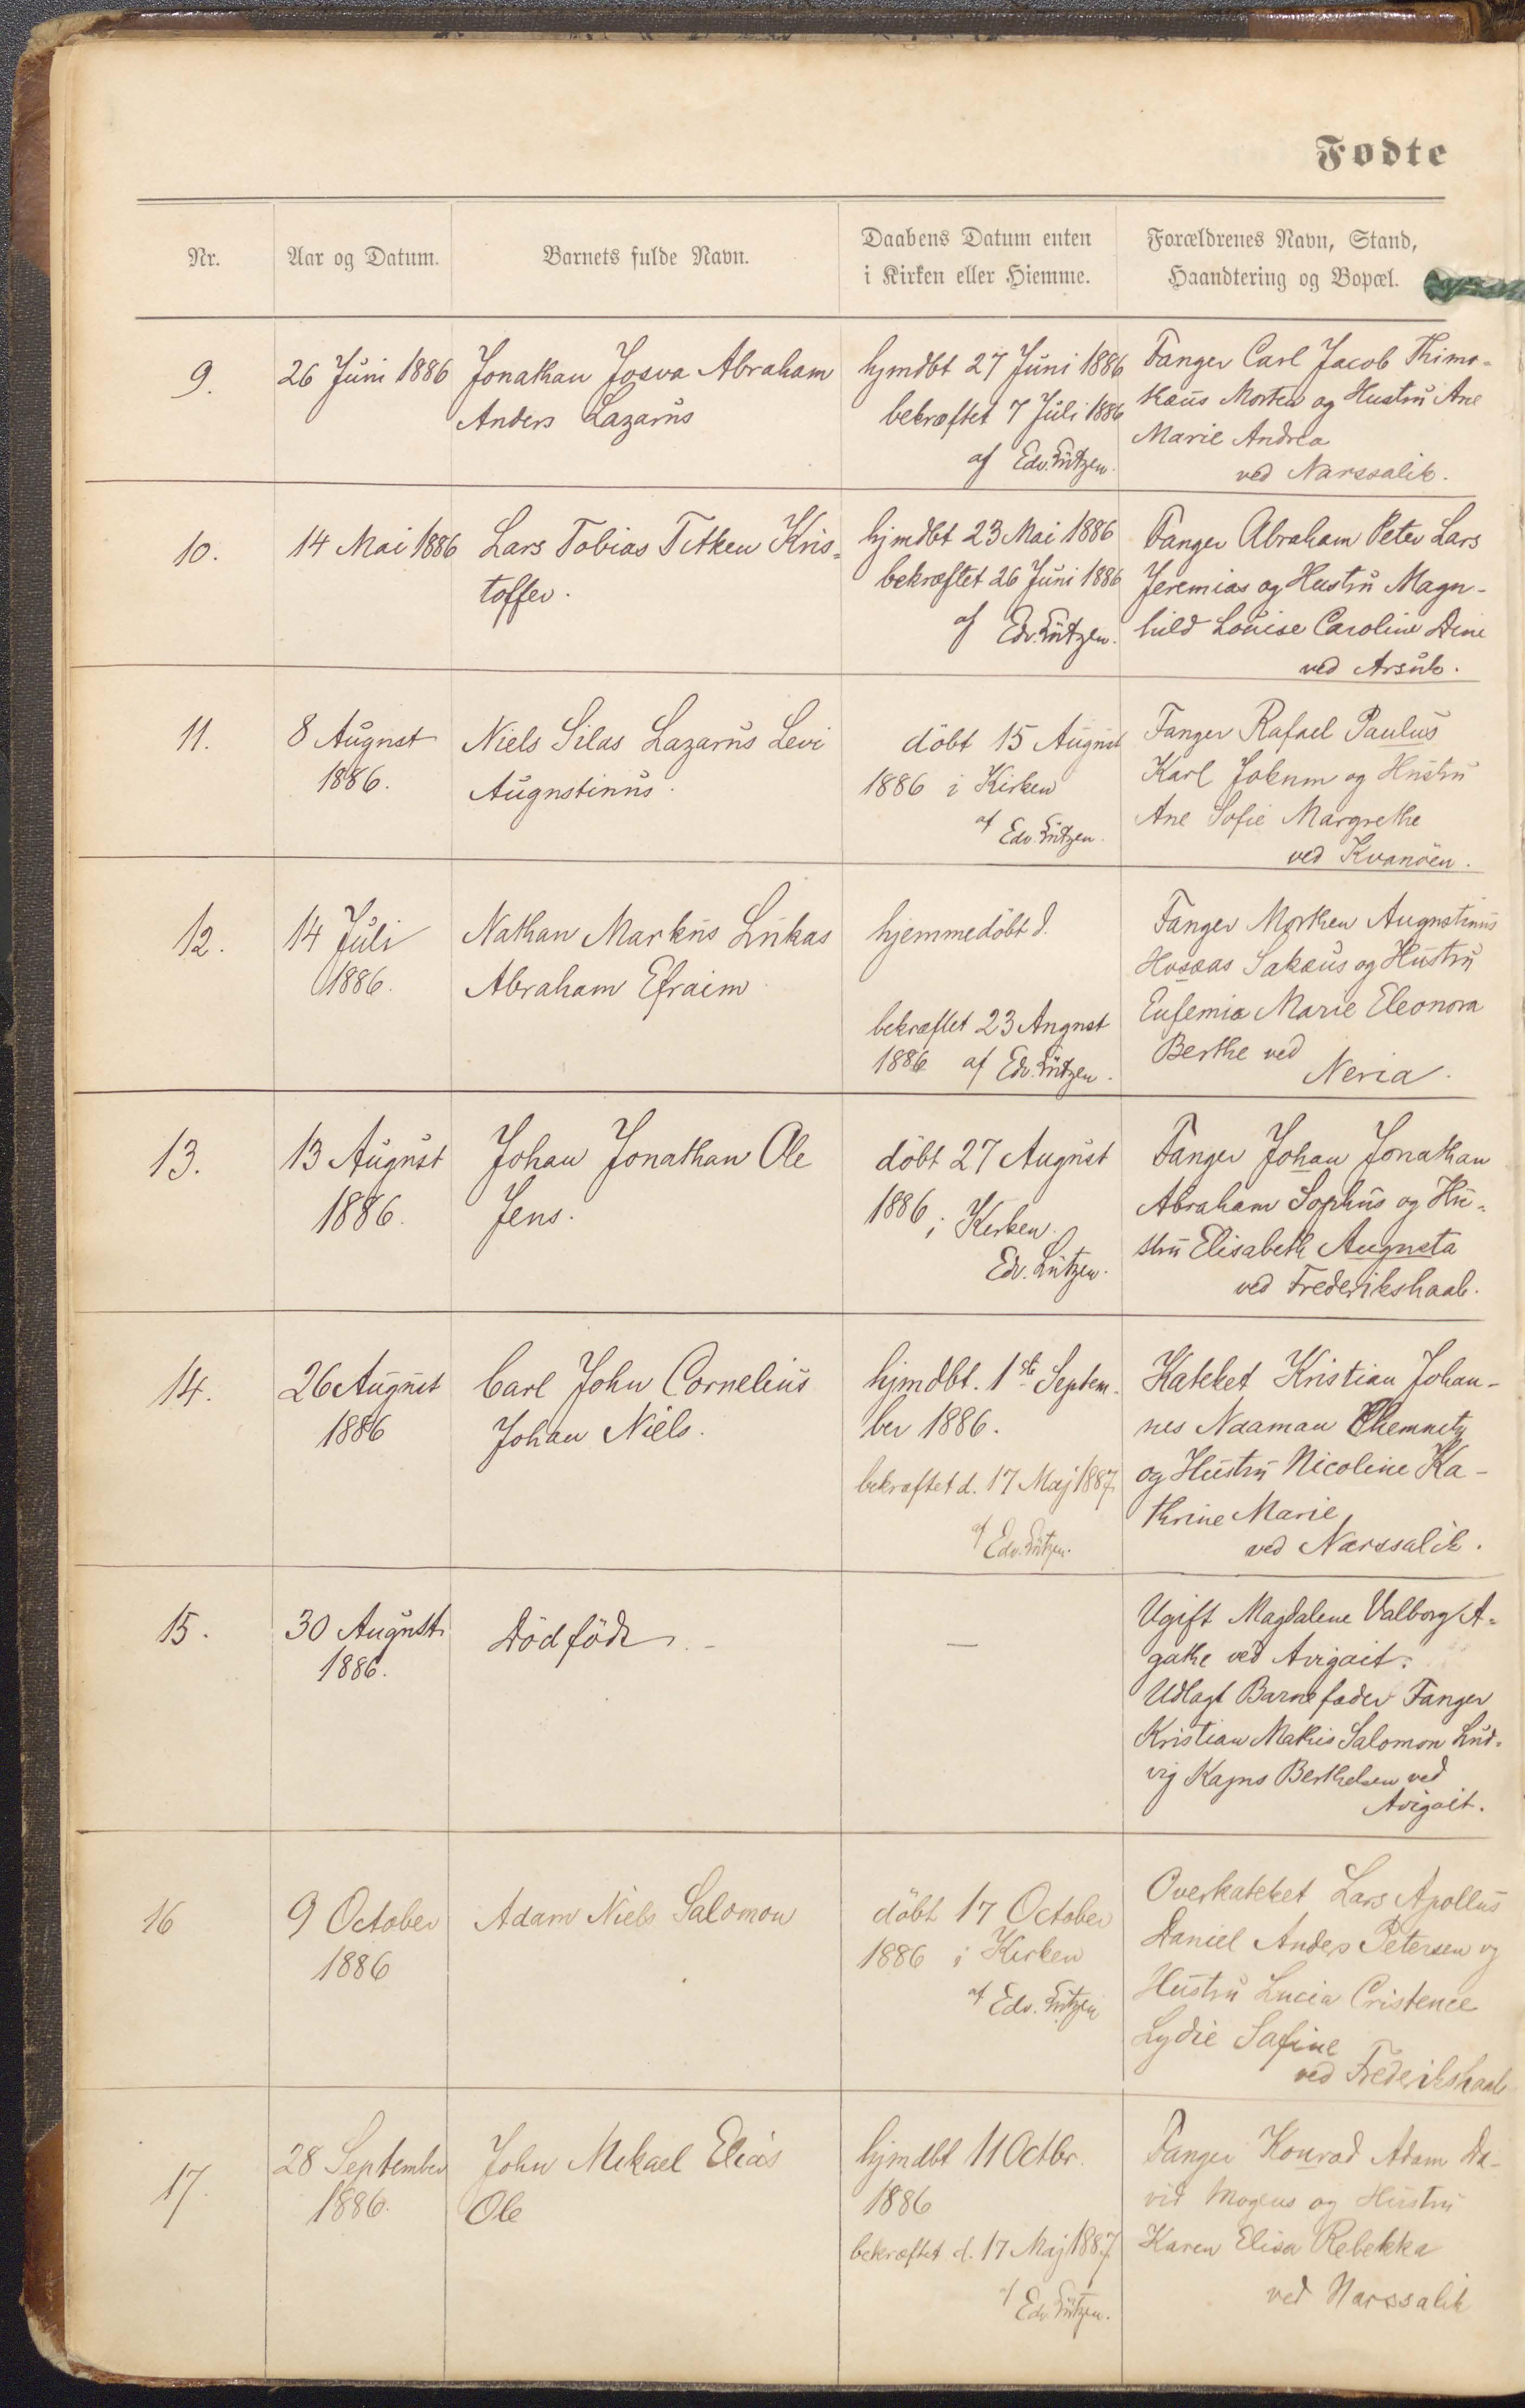 Fødte
Nr.
Aar og Datum.
Barnets fulde Navn.
Daabens Datum enten
i Kirken eller Hiemme.
Forældrenes Navn, Stand,
Haandtering og Bopæl.
9.
26 Juni 1886
Jonathan Josva Abraham
Anders Lazarus
hjmdbt 27 Juni 1886
bekræftet 7 Juli 1886
af Edv. Lützen.
Fanger Carl Jacob Thimo-
thæus Morten og Hustru Ane
Marie Andrea
ved Narssalik.
10.
14 Mai 1886
Lars Tobias Titken Kris-
toffer.
hjmdbt 23 Mai 1886
bekræftet 26 Juni 1886
af Edv. Lützen.
Fanger Abraham Peter Lars
Jeremias og Hustru Magn-
hild Louise Caroline Dine
ved Arsuk.
11.
8 August
1886.
Niels Silas Lazarus Levi
Augustinus.
döbt 15 August
1886 i Kirken
af Edv. Lützen.
Fanger Rafael Paulus
Karl Jokum og Hustru
Ane Sofie Margrethe
ved Kvanöen.
12.
14 Juli
1886.
Nathan Markus Lukas
Abraham Efraim
hjemmedöbt d.
bekræftet 23 August
1886 af Edv. Lützen.
Fanger Morten Augustinus
Hosæas Sakæus og Hustru
Eufemia Marie Eleonora
Berthe ved
Neria.
13.
13 August
1886.
Johan Jonathan Ole
Jens.
döbt 27 August
1886 i Kirken.
Edv. Lützen.
Fanger Johan Jonathan
Abraham Sophus og Hu-
stru Elisabeth Augusta
ved Frederikshaab.
14.
26 August
1886
Carl John Cornelius
Johan Niels.
hjmdbt. 1ste Septem-
ber 1886.
bekræftet d. 17 Maj 1887
af Edv. Lützen.
Kateket Kristian Johan-
nes Naaman Chemnitz
og Hustru Nicoline Ka-
thrine Marie
ved Narssalik.
15.
30 August
1886.
Dödfödt. -
—
Ugift Magdalene Valborg A-
gathe ved Avigait.
Udlagt Barnefader Fanger
Kristian Makis Salomon Lud-
vig Kajus Berthelsen ved
Avigait.
16
9 October
1886
Adam Niels Salomon
döbt 17 October
1886 i Kirken
af Edv. Lützen
Overkateket Lars Apollus
Daniel Anders Petersen og
Hustru Lucia Cristence
Lydie Safine
ved Frederikshaab
17.
28 September
1886.
John Mikael Elias
Ole
hjmdbt 11 Octbr.
1886
bekræftet d. 17 Maj 1887
af Edv. Lützen.
Fanger Konrad Adam Da-
vid Mogens og Hustru
Karen Elisa Rebekka
ved Narssalik